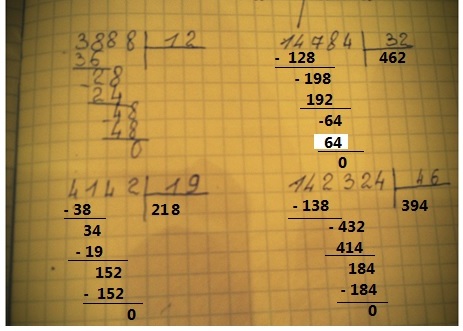 3888 12
36
28
- 24
- 48
48
0
14784 32
- 128 462
- 198
192
-64
64
0
4142 19
- 38 218
34
- 19
152
- 152
0
142324 46
- 138 394
- 432
414
184
- 184
0